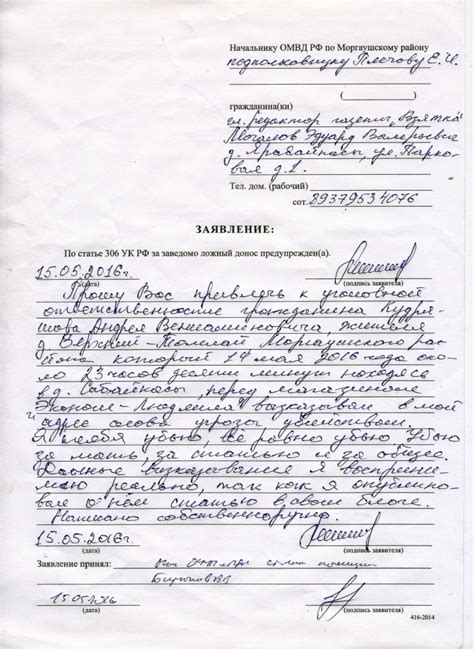 Начальнику ОМВД РФ по Моргаушскому району
подполковнику Плечову Е.И.
гражданина(ки)
гл. редактор газеты „Взятка"
Мочалов Эдуард Валерьевич
д. Ярабайкасы, ул. Парко-
вая д.1.
Тел. дом. (рабочий)
сот. 89379534076
ЗАЯВЛЕНИЕ:
По статье 306 УК РФ за заведомо ложный донос предупрежден(а).
15.05.2016г.
(дата) (подпись заявителя)
Прошу Вас привлечь к уголовной
ответственности гражданина Кудря-
шова Андрея Вениаминовича, жителя
д. Верхний Томлай Моргаушского рай
она который 14 мая 2016 года око
ло 23 часов десяти минут находясь
в д. Сабайкасы, перед магазином
Эконом-Людмила высказывал в мой
адрес слова угрозы убийством.
Я тебя убью, все равно убью. Убью
за мать, за статью и за общее.
Данные высказывания я восприни-
маю реально, так как я опублико-
вал о нем статью в своем блоге.
Написано собственноручно.
15.05.2016г.
(дата) (подпись заявителя)
Заявление принял:
15.05.2016
(дата) (подпись заявителя)
416-2014